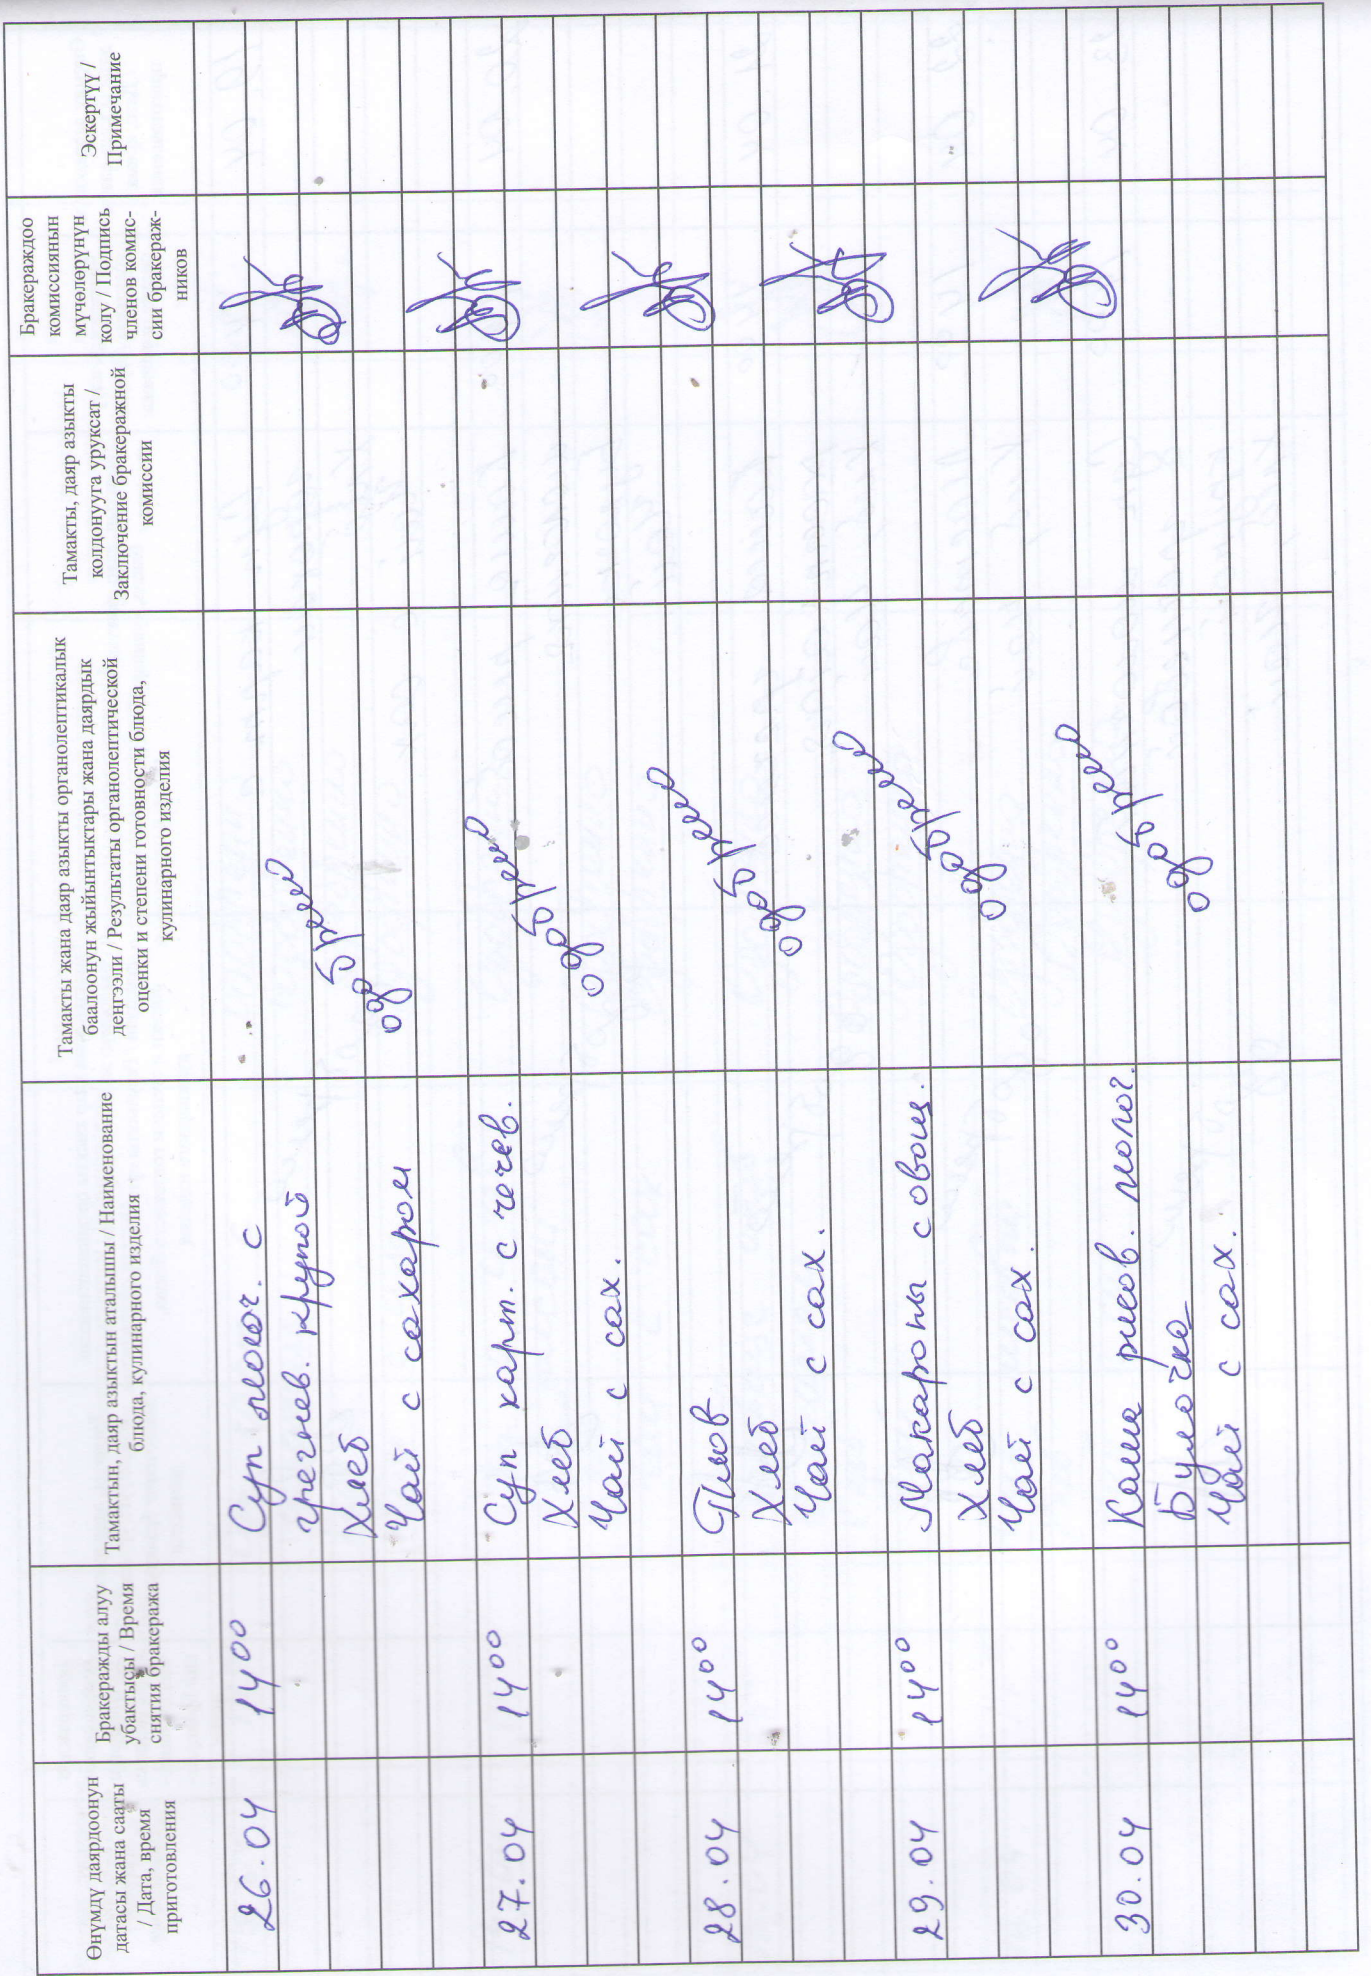 Өнүмдү даярдоонун
датасы жана сааты
/ Дата, время
приготовления
Бракеражды алуу
убактысы / Время
снятия бракеража
Тамактын, даяр азыктын аталышы / Наименование
блюда, кулинарного изделия
Тамакты жана даяр азыкты органолептикалык
баалоонун жыйынтыктары жана даярдык
деңгээли / Результаты органолептической
оценки и степени готовности блюда,
кулинарного изделия
Тамакты, даяр азыкты
колдонууга уруксат /
Заключение бракеражной
комиссии
Бракераждоо
комиссиянын
мүчөлөрүнүн
колу / Подпись
членов комис-
сии бракераж-
ников
Эскертүү /
Примечание
26.04 14⁰⁰ Суп молоч. с
гречнев. крупой
Хлеб
Чай с сахаром
одобрено
27.04 14⁰⁰ Суп карт. с чечев.
Хлеб
Чай с сах.
одобрено
28.04 14⁰⁰ Плов
Хлеб
Чай с сах.
одобрено
29.04 14⁰⁰ Макароны с овощ.
Хлеб
Чай с сах.
одобрено
30.04 14⁰⁰ Каша рисов. молоч.
Булочка
Чай с сах.
одобрено